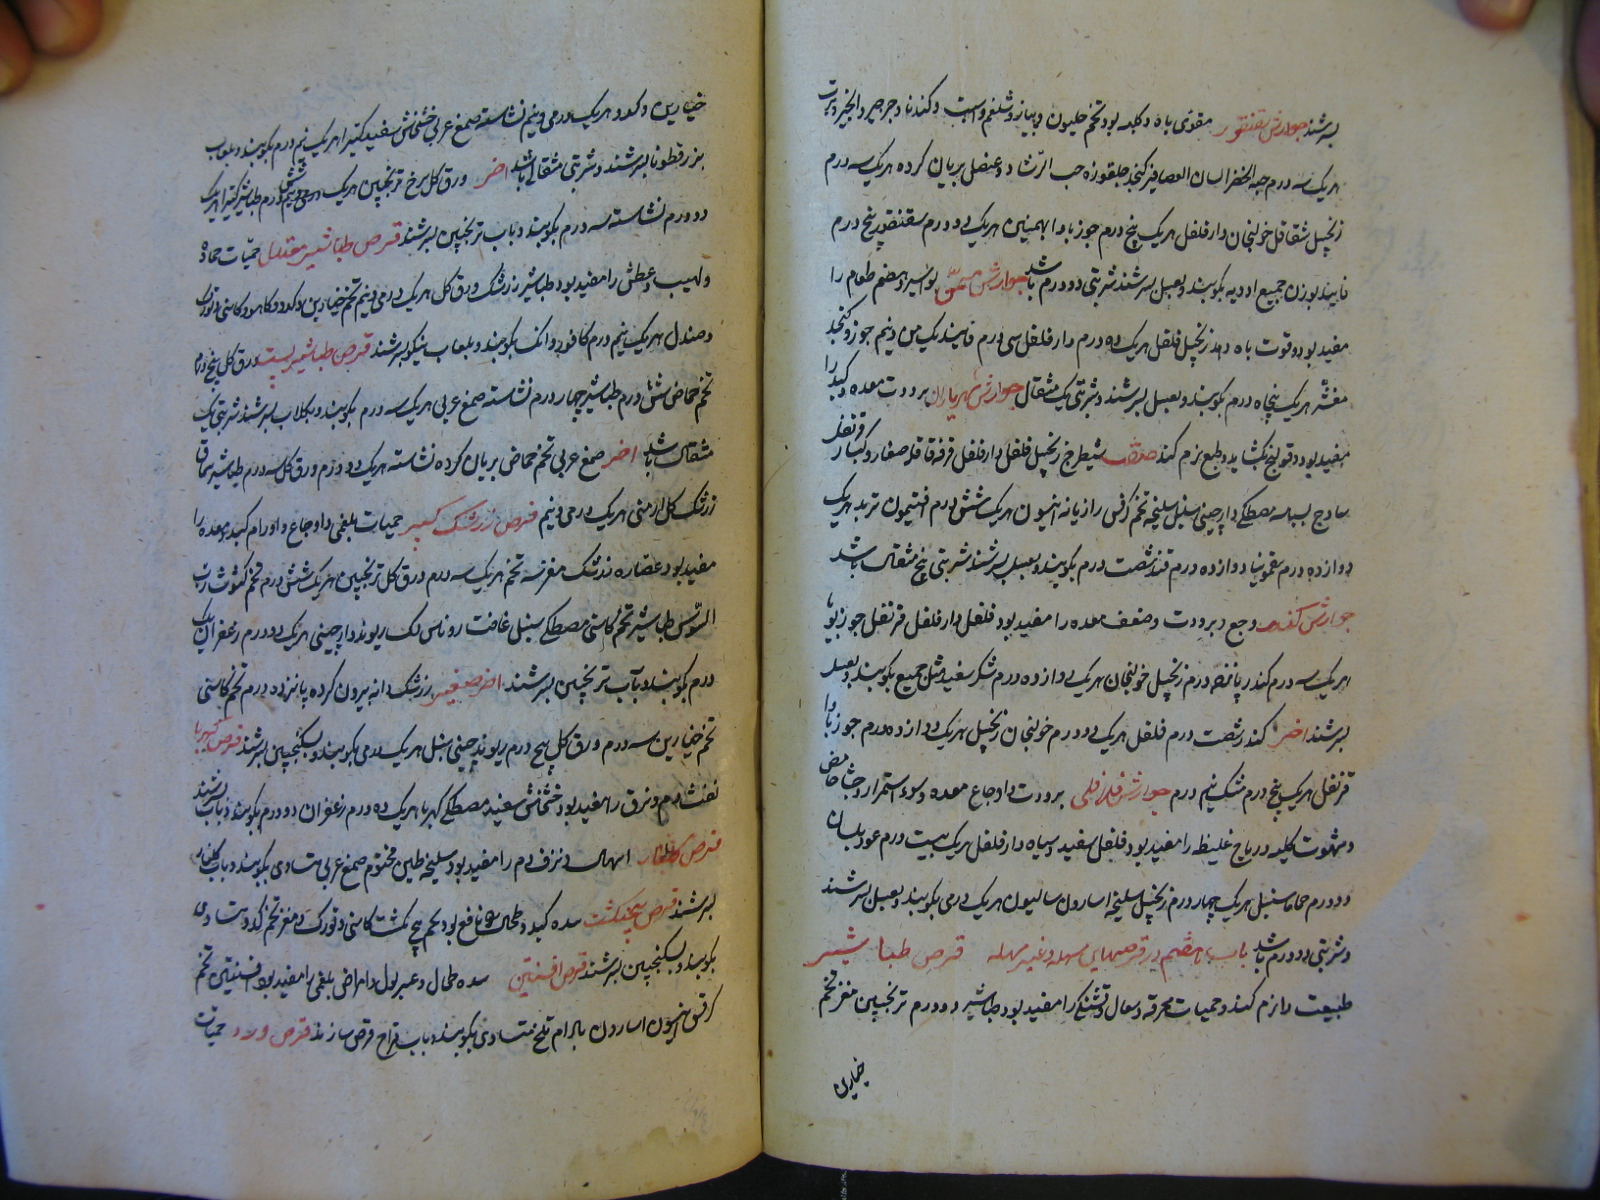 بسرشند جوارش سقنقور مقوی باه و کلیه بود تخم هلیون و پیاز و شلغم و اسپست و کندنا و جرجیر و انجیر و ترب
هریک سه درم حبه الخضرا لسان العصافیر کنجد جلقوزه حب الرشاد و عنصل بریان کرده هریک سه درم
زنجبیل شقاقل خولنجان دارفلفل هریک پنج درم جوزبوا بهمنین هریک دو درم سقنقور پنج درم
فانید بوزن جمیع ادویه بکوبند و بعسل بسرشند شربتی دو درم باشد جوارش بواسیر و هضم طعام را
مفید بود و قوت باه دهد زنجبیل فلفل هریک ده درم دارفلفل سی درم فانید یک من و نیم جوز و کنجد
مقشر هریک پنجاه درم بکوبند و بعسل بسرشند و شربتی یک مثقال جوارش شهریاران برودت معده و کبد را
مفید بود و قولنج بگشاید و طبع نرم کند شیطرج زنجبیل فلفل دارفلفل قرفه قاقله صغار و کبار قرنفل
سادج بسباسه مصطکی دارچینی سنبل سلیخه تخم کرفس رازیانه انیسون هریک شش درم افتیمون تربد هریک
دوازده درم سقمونیا دوازده درم قند شصت درم بکوبند و بعسل بسرشند شربتی پنج مثقال باشد
جوارش کندر وجع و برودت و ضعف معده را مفید بود فلفل دارفلفل قرنفل جوزبویا
هریک سه درم کندر پانزده درم زنجبیل خولنجان هریک دوازده درم شکر سفید مثل جمیع بکوبند و بعسل
بسرشند اخر کندر شصت درم فلفل هریک دو درم خولنجان زنجبیل هریک دوازده درم جوزبوا
قرنفل هریک پنج درم مشک نیم درم جوارش فلافلی برودت و اوجاع معده و سوء استمرا و جشاء حامض
و شهوت کلبیه و ریاح غلیظه را مفید بود فلفل سفید و سیاه دارفلفل هریک بیست درم عود بلسان
دو درم حماما سنبل هریک چهار درم زنجبیل سلیخه اسارون سالیون هریک درمی بکوبند و بعسل بسرشند
و شربتی دو درم باشد باب هشتم در قرصهای مسهله و غیر مسهله قرص طباشیر
طبیعت را نرم کند و حمیات محرقه و سعال و تشنگی را مفید بود طباشیر دو درم ترنجبین مغز تخم
خیارین
خیارین و کدو هریک درمی و نیم نشاسته صمغ عربی خشخاش سفید کتیرا هریک نیم درم بکوبند و بلعاب
بزرقطونا بسرشند و شربتی مثقالی باشد اخر ورق گل سرخ ترنجبین هریک درم طباشیر کتیرا هریک
دو درم نشاسته سه درم بکوبند و باب ترنجبین بسرشند قرص طباشیر معتدل حمیات حاده
و لهیب و عطش را مفید بود طباشیر زرشک ورق گل هریک درمی و نیم تخم خیارین و کدو و کاهو و کاسنی
و صندل هریک نیم درم کافور دانک بکوبند و بلعاب نیکو بسرشند قرص طباشیر ورق گل پنج درم
تخم حماض شش درم طباشیر چهار درم نشاسته صمغ عربی هریک سه درم بکوبند و بکلاب بسرشند شربتی یک
مثقال باشد اخر صمغ عربی تخم حماض بریان کرده نشاسته هریک دو درم ورق گل سه درم طباشیر سماق
زرشک گل ارمنی هریک درمی و نیم قرص زرشک کبیر حمیات بلغمی و اوجاع و اورام کبد و معده را
مفید بود عصاره زرشک مغز سه تخم هریک سه درم ورق گل ترنجبین هریک شش درم تخم کشوث رب
السوس طباشیر تخم کاسنی مصطکی سنبل غافث روناس لک ریوند دارچینی هریک دو درم زعفران یک
درم بکوبند و بآب ترنجبین بسرشند اخر صغیر زرشک دانه بیرون کرده پانزده درم تخم کاسنی
تخم خیارین سه درم ورق گل پنج درم ریوند چینی سنبل هریک درمی بکوبند و بسکنجبین بسرشند قرص کهربا
نفث الدم و نزف را مفید بود خشخاش سفید مصطکی کهربا هریک ده درم زعفران دو درم بکوبند و باب بسرشند
قرص گلنار اسهال و نزف دم را مفید بود سلیخه طین مختوم صمغ عربی متساوی بکوبند و باب گلنار
بسرشند قرص پنجنکشت سده کبد و طحال را نافع بود تخم پنجنکشت کاسنی و تورک و مغز تخم کدو متساوی
بکوبند و بسکنجبین بسرشند قرص افسنتین سده طحال و عسر بول و امراض بلغمی را مفید بود افسنتین تخم
کرفس انیسون اسارون بادام تلخ متساوی بکوبند و باب قراح قرص سازند قرص ورد حمیات